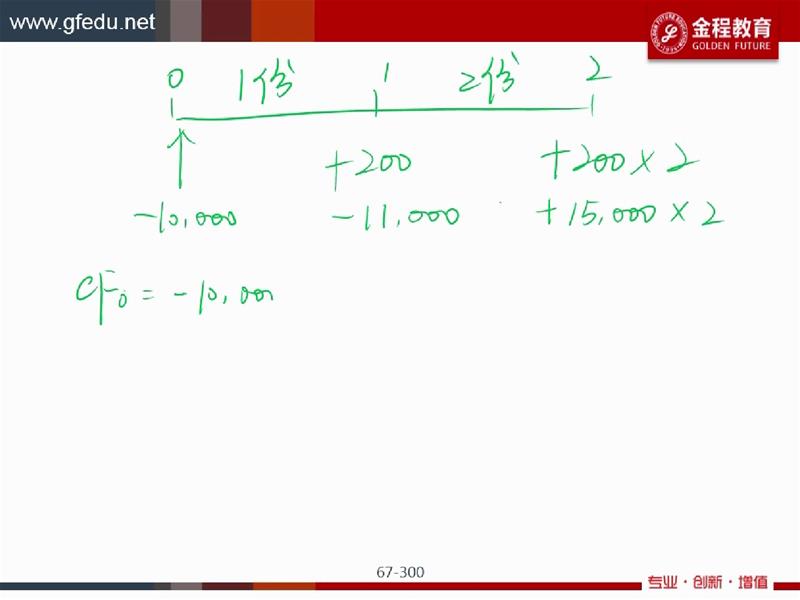 www.gfedu.net
金程教育
GOLDEN FUTURE
0 1份 1 2份 2
+200 +200×2
-10,000 -11,000 +15,000×2
CF₀ = -10,000
67-300
专业·创新·增值